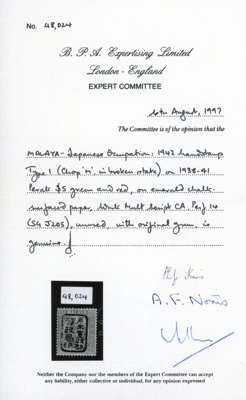 No. 48,024
B. P. A. Expertising Limited
London - England
EXPERT COMMITTEE
4th August, 1997
The Committee is of the opinion that the
MALAYA - Japanese Occupation: 1942 handstamp
Type 1 (Chop 'M', in broken state) on 1938-41
Perak $5 green and red, on emerald chalk-
surfaced paper, wmk Mult Script CA. Perf 14
(SG J205), unused, with original gum, is
genuine.
A. F. Norris
48,024
Neither the Company nor the members of the Expert Committee can accept
any liability, either collective or individual, for any opinion expressed